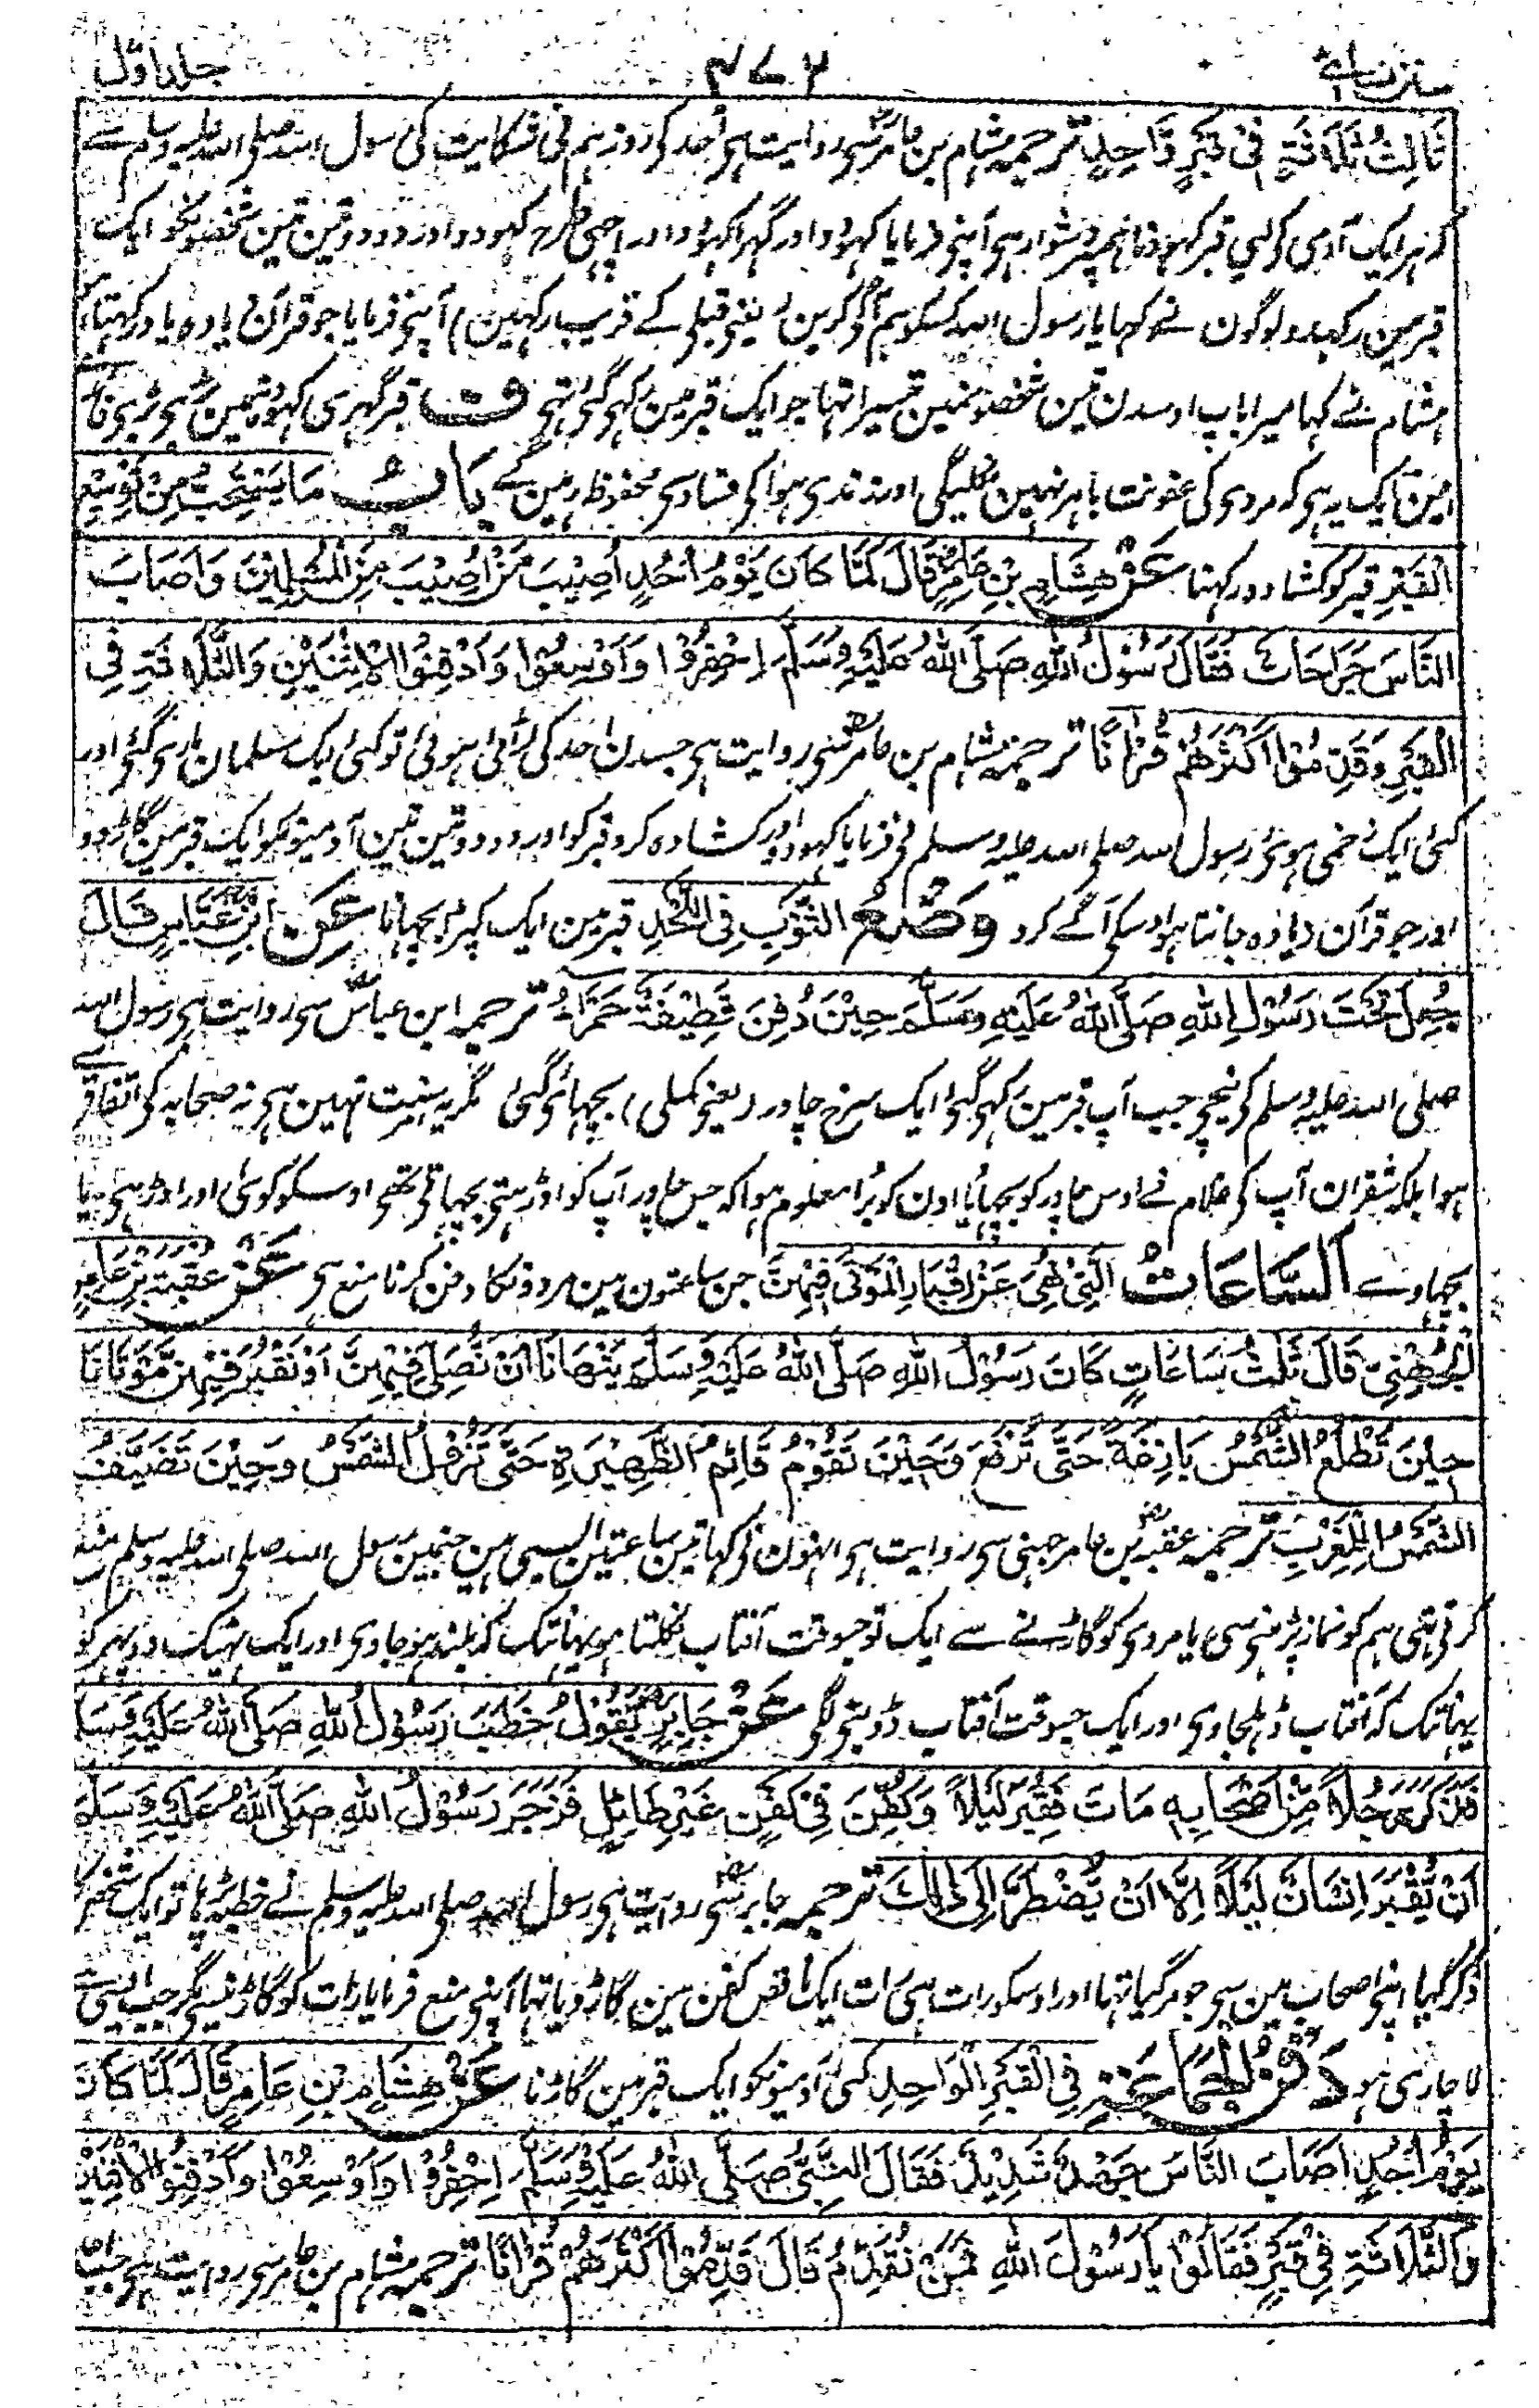 سنن نسائی ۴۷۳ جلد اول
ثَالِثُ ثَلَاثَةٍ فِیْ قَبْرٍ وَّاحِدٍ ترجمہ ہشام بن عامرؓ سے روایت ہی اُحد کی روز ہم نی شکایت کی رسول اللہ صلی اللہ علیہ وسلم سے
کہ ہر ایک آدمی کولیی قبر کہودنا ہمپر دشوار ہی آپنی فرمایا کہودو اور گہرا کہودو اور اچہی طرح کہودو اور دو دو تین تین شخصونکو ایک
قبر مین رکہدو لوگون نے کہا یا رسول اللہ کسکو ہم آگی کرین (یعنی قبلی کے قریب رکہین) آپنی فرمایا جو قرآن زیادہ یاد رکہتا ہو
ہشام نے کہا میرا باپ اوسدن تین شخصونمین تیسرا تہا جو ایک قبر مین رکہی گئی تہی ف قبر گہری کہودنیمین بڑی بڑی فائدے
ہین ایک یہ ہی کہ مردی کی عفونت باہر نہین نکلیگی اور زندی ہوا کی فساد سی محفوظ رہین گے بَابُ مَا یُسْتَحَبُّ مِنْ تَوْسِیْعِ
الْقَبْرِ قبر کو کشادہ رکہنا عَنْ هِشَامِ بْنِ عَامِرٍ قَالَ لَمَّا کَانَ یَوْمُ اُحُدٍ اُصِیْبَ مَنْ اُصِیْبَ مِنَ الْمُسْلِمِیْنَ وَاَصَابَ
النَّاسَ جَرَاحَاتٌ فَقَالَ رَسُوْلُ اللهِ صَلَّی اللهُ عَلَیْهِ وَسَلَّمَ اِحْفِرُوْا وَاَوْسِعُوْا وَادْفِنُوا الْاِثْنَیْنِ وَالثَّلَاثَةِ فِی
الْقَبْرِ وَقَدِّمُوْا اَکْثَرَهُمْ قُرْاٰنًا ترجمہ ہشام بن عامرؓ سی روایت ہی جسدن احد کی لڑائی ہوئی تو کئی ایک مسلمان ماری گئی اور
کئی ایک زخمی ہوئی رسول اللہ صلی اللہ علیہ وسلم نی فرمایا کہودو اور کشادہ کرو قبر کو اور دو دو تین تین آدمیونکو ایک قبر مین گاڑدو
اور جو قرآن زیادہ جانتا ہو اوسکی آگے کرو وَضْعُ الثَّوْبِ فِی اللَّحْدِ قبر مین ایک کپڑا بچہانا عَنِ ابْنِ عَبَّاسٍ قَالَ
جُعِلَ تَحْتَ رَسُوْلِ اللهِ صَلَّی اللهُ عَلَیْهِ وَسَلَّمَ حِیْنَ دُفِنَ قَطِیْفَةٌ حَمْرَآءُ ترجمہ ابن عباسؓ سی روایت ہی رسول اللہ
صلی اللہ علیہ وسلم کی نیچی جب آپ قبر مین رکہی گئی ایک سرخ چادر (یعنی کملی) بچہائی گئی مگر یہ سنت نہین ہی نہ صحابہ کی اتفاق سے
ہوا بلکہ شقران آپ کی غلام نے اوس چادر کو بچہایا اون کو برا معلوم ہوا کہ جس چادر آپ کو اوڑہتی بچہاتی تہی اوسکو کوئی اور اوڑہی یا
بچہاوے اَلسَّاعَاتُ الَّتِیْ نُهِیَ عَنْ اِقْبَارِ الْمَوْتٰی فِیْهِنَّ جن ساعتون مین مردونکا دفن کرنا منع ہی عَنْ عُقْبَةَ بْنِ عَامِرٍ
الْجُهَنِیِّ قَالَ ثَلٰثُ سَاعَاتٍ کَانَ رَسُوْلُ اللهِ صَلَّی اللهُ عَلَیْهِ وَسَلَّمَ یَنْهَانَا اَنْ نُصَلِّیَ فِیْهِنَّ اَوْ نَقْبُرَ فِیْهِنَّ مَوْتَانَا
حِیْنَ تَطْلُعُ الشَّمْسُ بَازِغَةً حَتّٰی تَرْتَفِعَ وَحِیْنَ تَقُوْمُ قَائِمُ الظَّهِیْرَةِ حَتّٰی تَزُوْلَ الشَّمْسُ وَحِیْنَ تَضَیَّفُ
الشَّمْسُ لِلْغُرُبِ ترجمہ عقبہؓ بن عامر جہنی سی روایت ہی اونہون نی کہا تین ساعتین ایسی ہین جنمین رسول اللہ صلی اللہ علیہ وسلم منع
کرتی تہی ہم کو نماز پڑہنی سی یا مردی کو گاڑنے سے ایک تو جسوقت آفتاب نکلتا ہو یہانتک کہ بلند ہو جاوی اور ایک ٹہیک دوپہر کو
یہانتک کہ آفتاب ڈہلجاوی اور ایک جسوقت آفتاب ڈوبنی لگی عَنْ جَابِرٍ یَّقُوْلُ خَطَبَ رَسُوْلُ اللهِ صَلَّی اللهُ عَلَیْهِ وَسَلَّمَ
فَذَکَرَ رَجُلًا مِّنْ اَصْحَابِهٖ مَاتَ فَقُبِرَ لَیْلًا وَکُفِّنَ فِیْ کَفَنٍ غَیْرِ طَائِلٍ فَزَجَرَ رَسُوْلُ اللهِ صَلَّی اللهُ عَلَیْهِ وَسَلَّمَ
اَنْ یُّقْبَرَ اِنْسَانٌ لَیْلًا اِلَّا اَنْ یُّضْطَرَّ اِلٰی ذٰلِکَ ترجمہ جابرؓ سی روایت ہی رسول اللہ صلی اللہ علیہ وسلم نے خطبہ پڑہا تو ایک شخص کا
ذکر کیا اپنی اصحاب مین سی جو مر گیا تہا اور اوسکو رات ہی رات ایک ناقص کفن مین گاڑ دیا تہا آپنی منع فرمایا رات کو گاڑنیسی مگر جب ایسی ہی
لاچاری ہو دَفْنُ الْجَمَاعَةِ فِی الْقَبْرِ الْوَاحِدِ کئی آدمیونکو ایک قبر مین گاڑنا عَنْ هِشَامِ بْنِ عَامِرٍ قَالَ لَمَّا کَانَ
یَوْمُ اُحُدٍ اَصَابَ النَّاسَ جَهْدٌ شَدِیْدٌ فَقَالَ النَّبِیُّ صَلَّی اللهُ عَلَیْهِ وَسَلَّمَ اِحْفِرُوْا وَاَوْسِعُوْا وَادْفِنُوا الْاِثْنَیْنِ
وَالثَّلَاثَةِ فِیْ قَبْرٍ فَقَالُوْا یَا رَسُوْلَ اللهِ فَمَنْ نُقَدِّمُ قَالَ قَدِّمُوْا اَکْثَرَهُمْ قُرْاٰنًا ترجمہ ہشام بن عامر سی روایت ہی جب